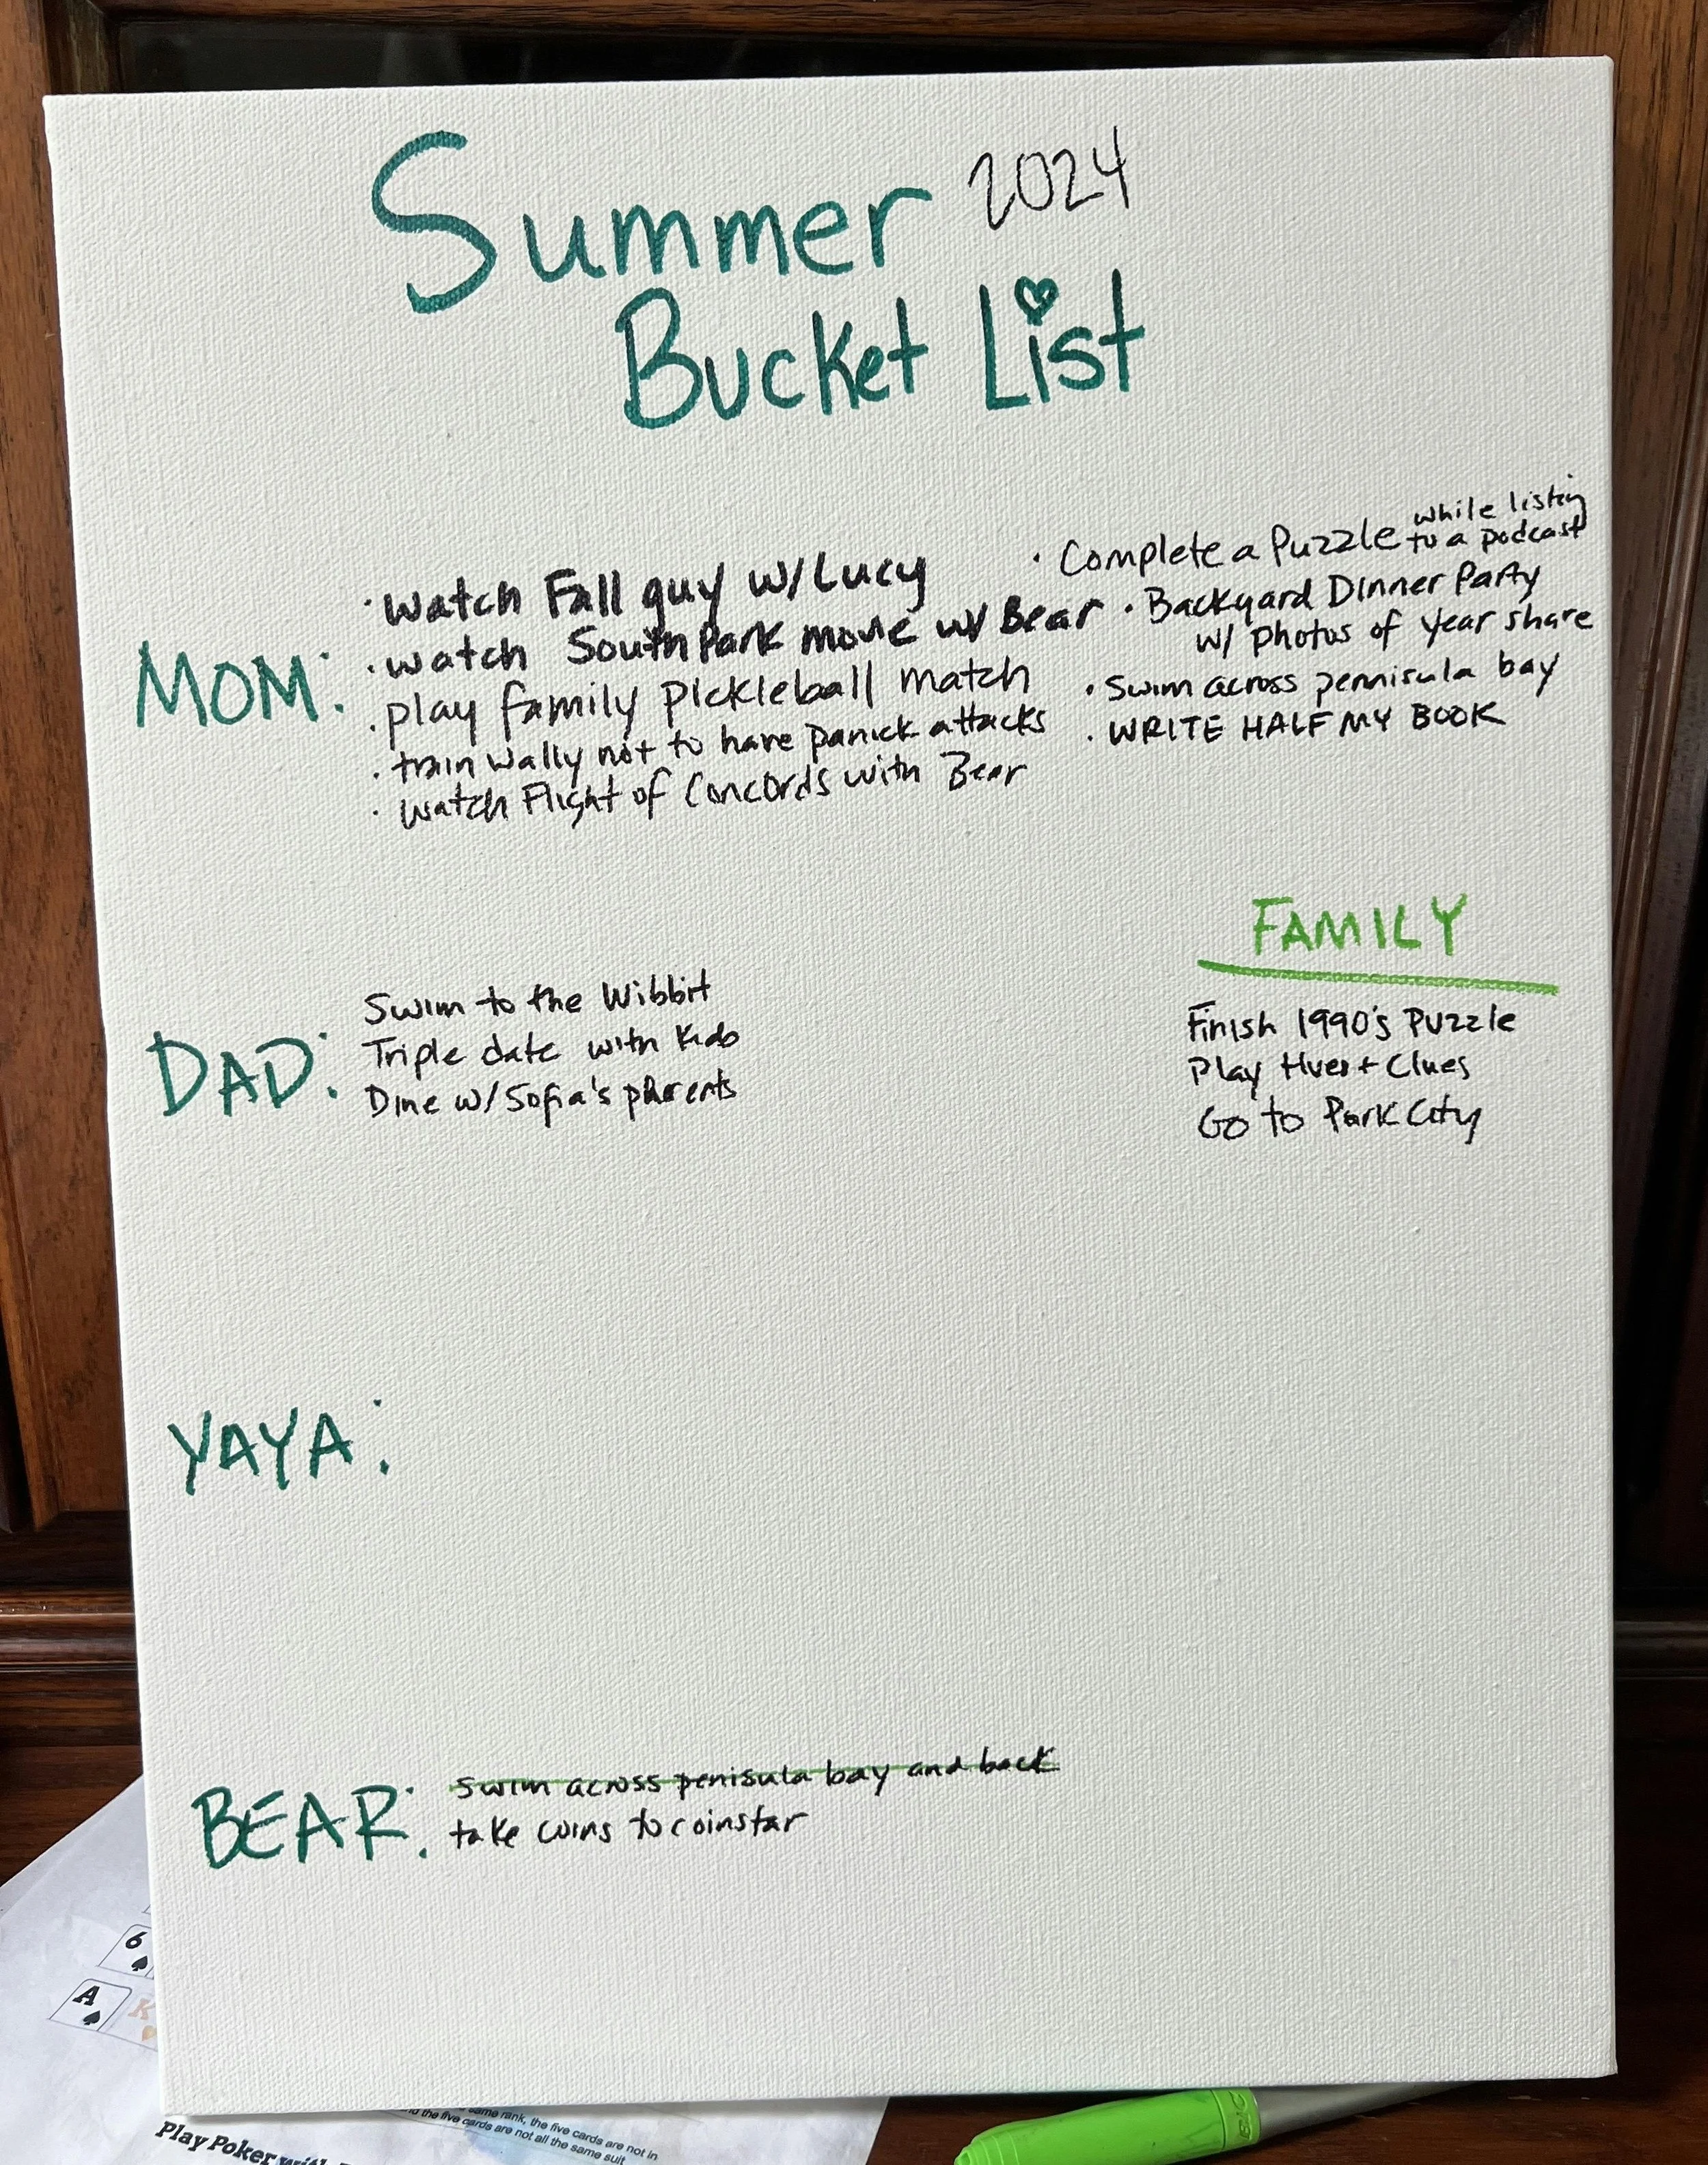 Summer 2024
Bucket List
MOM:
· watch Fall guy w/ Lucy
· watch South Park movie w/ Bear
· play family pickleball match
· train wally not to have panick attacks
· watch Flight of Concords with Bear
· Complete a Puzzle while listing
to a podcast
· Backyard Dinner Party
w/ photos of year share
· Swim across pennisula bay
· WRITE HALF MY BOOK
FAMILY
Finish 1990's Puzzle
Play Hues + Clues
Go to Park City
DAD:
Swim to the Wibbit
Triple date with Kids
Dine w/ Sofia's parents
YAYA:
BEAR:
swim across penisula bay and back
take coins to coinstar
6
A
K
same rank, the five cards are not in
the five cards are not all the same suit
Play Poker with